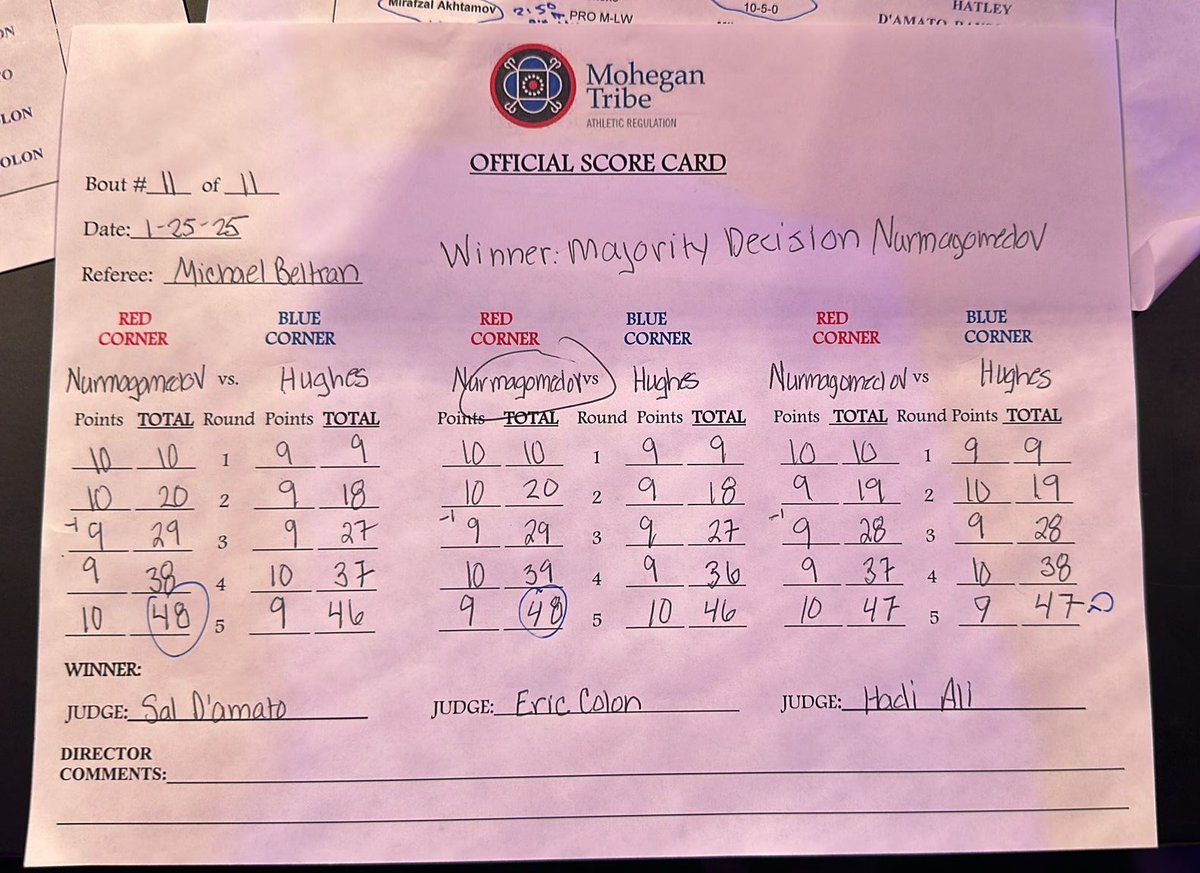 ON
O
LON
OLON
Mirafzal Akhtamov
2:50
PRO M-LW
10-5-0
HATLEY
Mohegan
Tribe
ATHLETIC REGULATION
OFFICIAL SCORE CARD
Bout # 11 of 11
Date: 1-25-25
Winner: Majority Decision Nurmagomedov
Referee: Michael Beltran
RED CORNER BLUE CORNER RED CORNER BLUE CORNER RED CORNER BLUE CORNER
Nurmagomedov vs. Hughes Nurmagomedov vs Hughes Nurmagomedov vs Hughes
Points TOTAL Round Points TOTAL Points TOTAL Round Points TOTAL Points TOTAL Round Points TOTAL
10 10 1 9 9 10 10 1 9 9 10 10 1 9 9
10 20 2 9 18 10 20 2 9 18 9 19 2 10 19
-1 9 29 3 9 27 -1 9 29 3 9 27 -1 9 28 3 9 28
9 38 4 10 37 10 39 4 9 36 9 37 4 10 38
10 48 5 9 46 9 48 5 10 46 10 47 5 9 47
WINNER:
JUDGE: Sal D'amato JUDGE: Eric Colon JUDGE: Hadi Ali
DIRECTOR
COMMENTS: